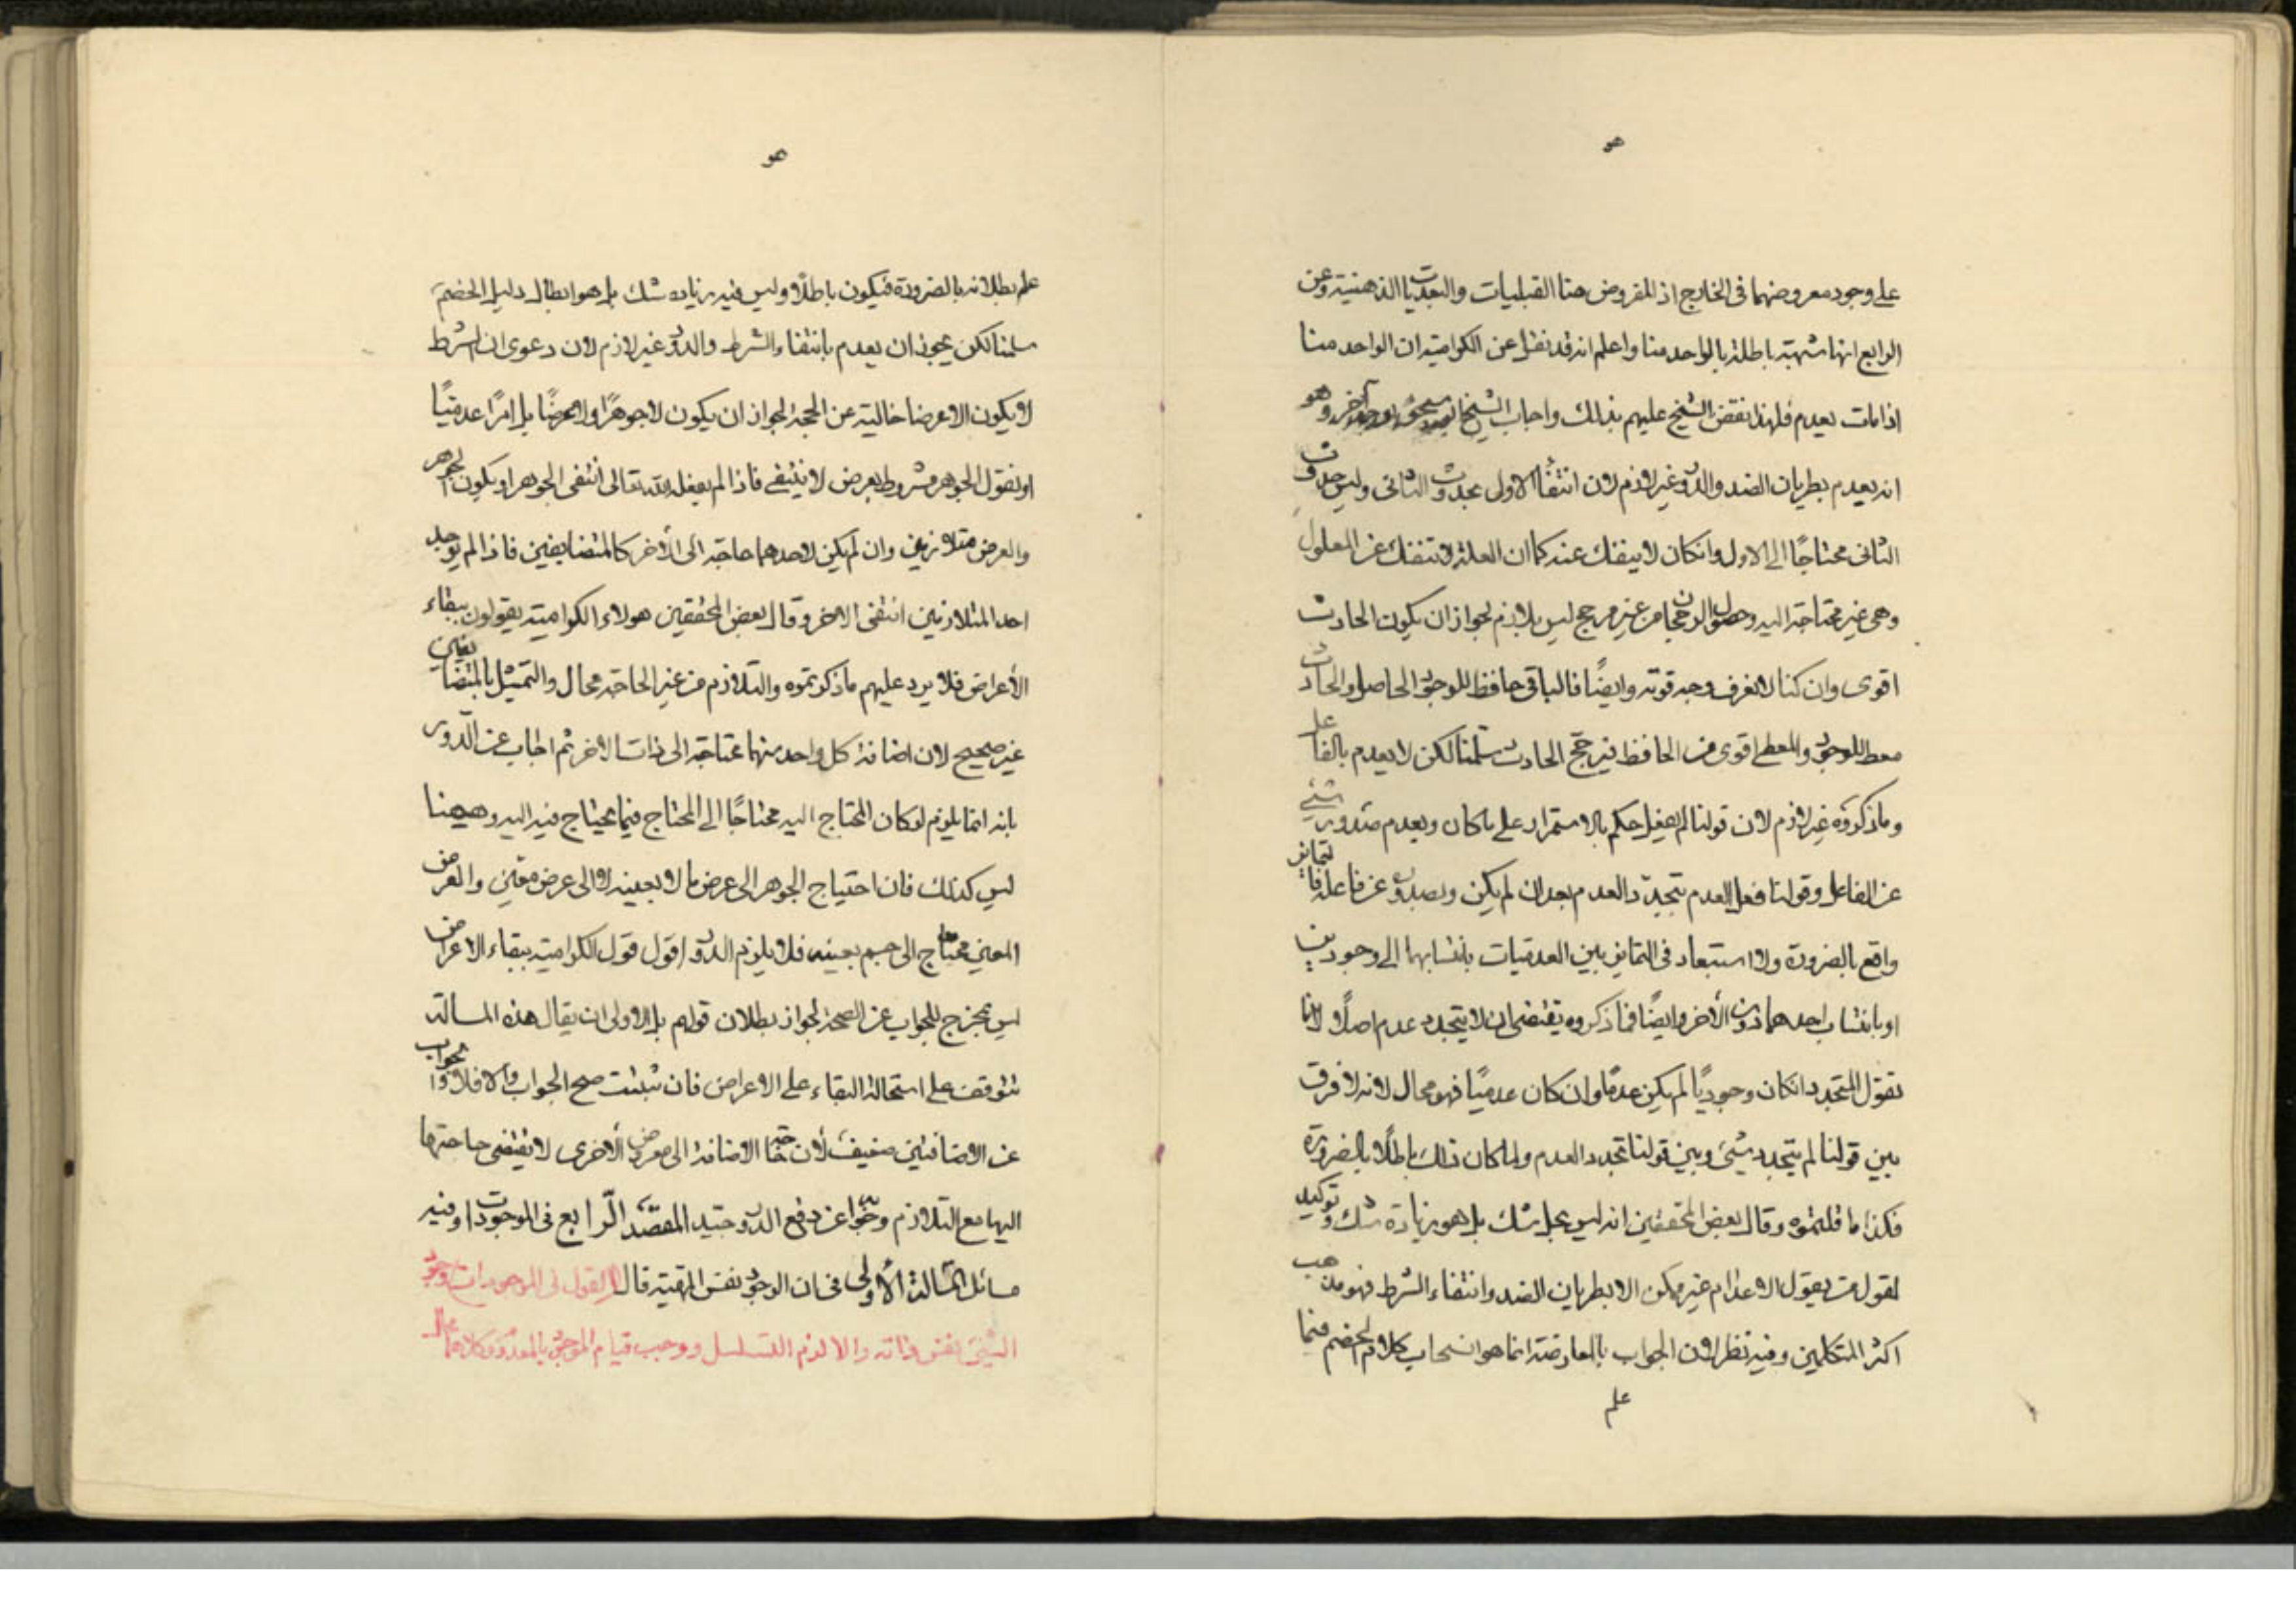 هو
على وجود معروضهما فى الخارج اذ المفروض هنا القبليات والبعديات الذهنية وعن
الرابع انها شبهة باطلة بالواحد منا واعلم انه قد نقل عن الكرامية ان الواحد منا
اذا مات يعدم فلهذا نقض الشيخ عليهم بذلك واجاب الشيخ آخر وهو
انه يعدم بطريان الضد والدور غير لازم لان انتفاء الاول بحدوث الثانى وليس حدوث
الثانى محتاجًا الى الاول وانكان لا ينفك عنه كما ان العلة لا تنفك عن المعلول
وهى غير محتاجة اليه وحصول الرجحان من غير مرجح ليس بلازم لجواز ان يكون الحادث
اقوى وان كنا لا نعرف وجه قوته وايضًا فالباقى حافظ للوجود الحاصل والحادث
معط للوجود والمعطى اقوى من الحافظ فيرجح الحادث سلمنا لكن لا يعدم بالفاعل
وما ذكروه غير لازم لان قولنا لم يفعل حكم بالاستمرار على ما كان وبعدم صدور شئ
عن الفاعل وقولنا فعل العدم بتجدد العدم بعد ان لم يكن وبصدوره عن فاعله فالتمايز
واقع بالضرورة ولا استبعاد فى التمايز بين العدميات بانتسابها الى وجودين
او بانتساب احدهما دون الأخر وايضًا فما ذكروه يقتضى ان لا يتجدد عدم اصلًا لانا
نقول المتجدد انكان وجوديًا لم يكن عدمًا وان كان عدميًا فهو محال لانه لا فرق
بين قولنا لم يتجدد شئ وبين قولنا تجدد العدم ولما كان ذلك باطلًا بالضرورة
فكذا ما قلتموه وقال بعض المحققين انه ليس بحل شك بل هو زيادة شك وتوكيد
لقول من يقول الاعدام غير ممكن الا بطريان الضد وانتفاء الشرط فهو مذهب
اكثر المتكلمين وفيه نظر لان الجواب بالمعارضة انما هو انسحاب كلام الخصم فيما
علم
هو
علم بطلانه بالضرورة فيكون باطلًا وليس فيه زيادة شك بل هو ابطال دليل الخصم
سلمنا لكن يجوز ان يعدم بانتفاء الشرط والدور غير لازم لان دعوى ان الشرط
لا يكون الا عرضا خالية عن الحجة لجواز ان يكون لا جوهرًا ولا عرضًا بل امرًا عدميًا
او نقول الجوهر مشروط بعرض لا يبقى فاذا لم يفعله الله تعالى انتفى الجوهر او يكون الجوهر
والعرض متلازمين وان لم يكن لاحدهما حاجة الى الأخر كالمتضايفين فاذا لم يوجد
احد المتلازمين انتفى الاخر وقال بعض المحققين هولاء الكرامية يقولون ببقاء
الأعراض فلا يرد عليهم ما ذكرتموه والتلازم من غير الحاجة محال والتمثيل بالمتضايفين
غير صحيح لان اضافة كل واحد منهما محتاجة الى ذات الاخر ثم اجاب عن الدور
بانه انما يلزم لو كان المحتاج اليه محتاجًا الى المحتاج فيما يحتاج فيه اليه وههنا
ليس كذلك فان احتياج الجوهر الى عرض ما لا بعينه لا الى عرض معين والعرض
المعين محتاج الى جسم بعينه فلا يلزم الدور اقول قول الكرامية ببقاء الاعراض
ليس بمخرج للجواب عن الصحة لجواز بطلان قولهم بل الاولى ان يقال هذه المسالة
تتوقف على استحالة البقاء على الاعراض فان ثبتت صح الجواب والا فلا والجواب
عن الاضافتين ضعيف لأن حاجة الاضافة الى معروض الأخرى لا يقتضى حاجتها
اليها مع التلازم وجوابه عن دفع الدور جيد المقصد الرابع فى الموجودات وفيه
مسائل المسالة الأولى فى ان الوجود نفس المهية قال القول فى الموجودات وجود
الشئ نفس ذاته والا لزم التسلسل ووجب قيام الموجود بالمعدوم وكلاهما محال